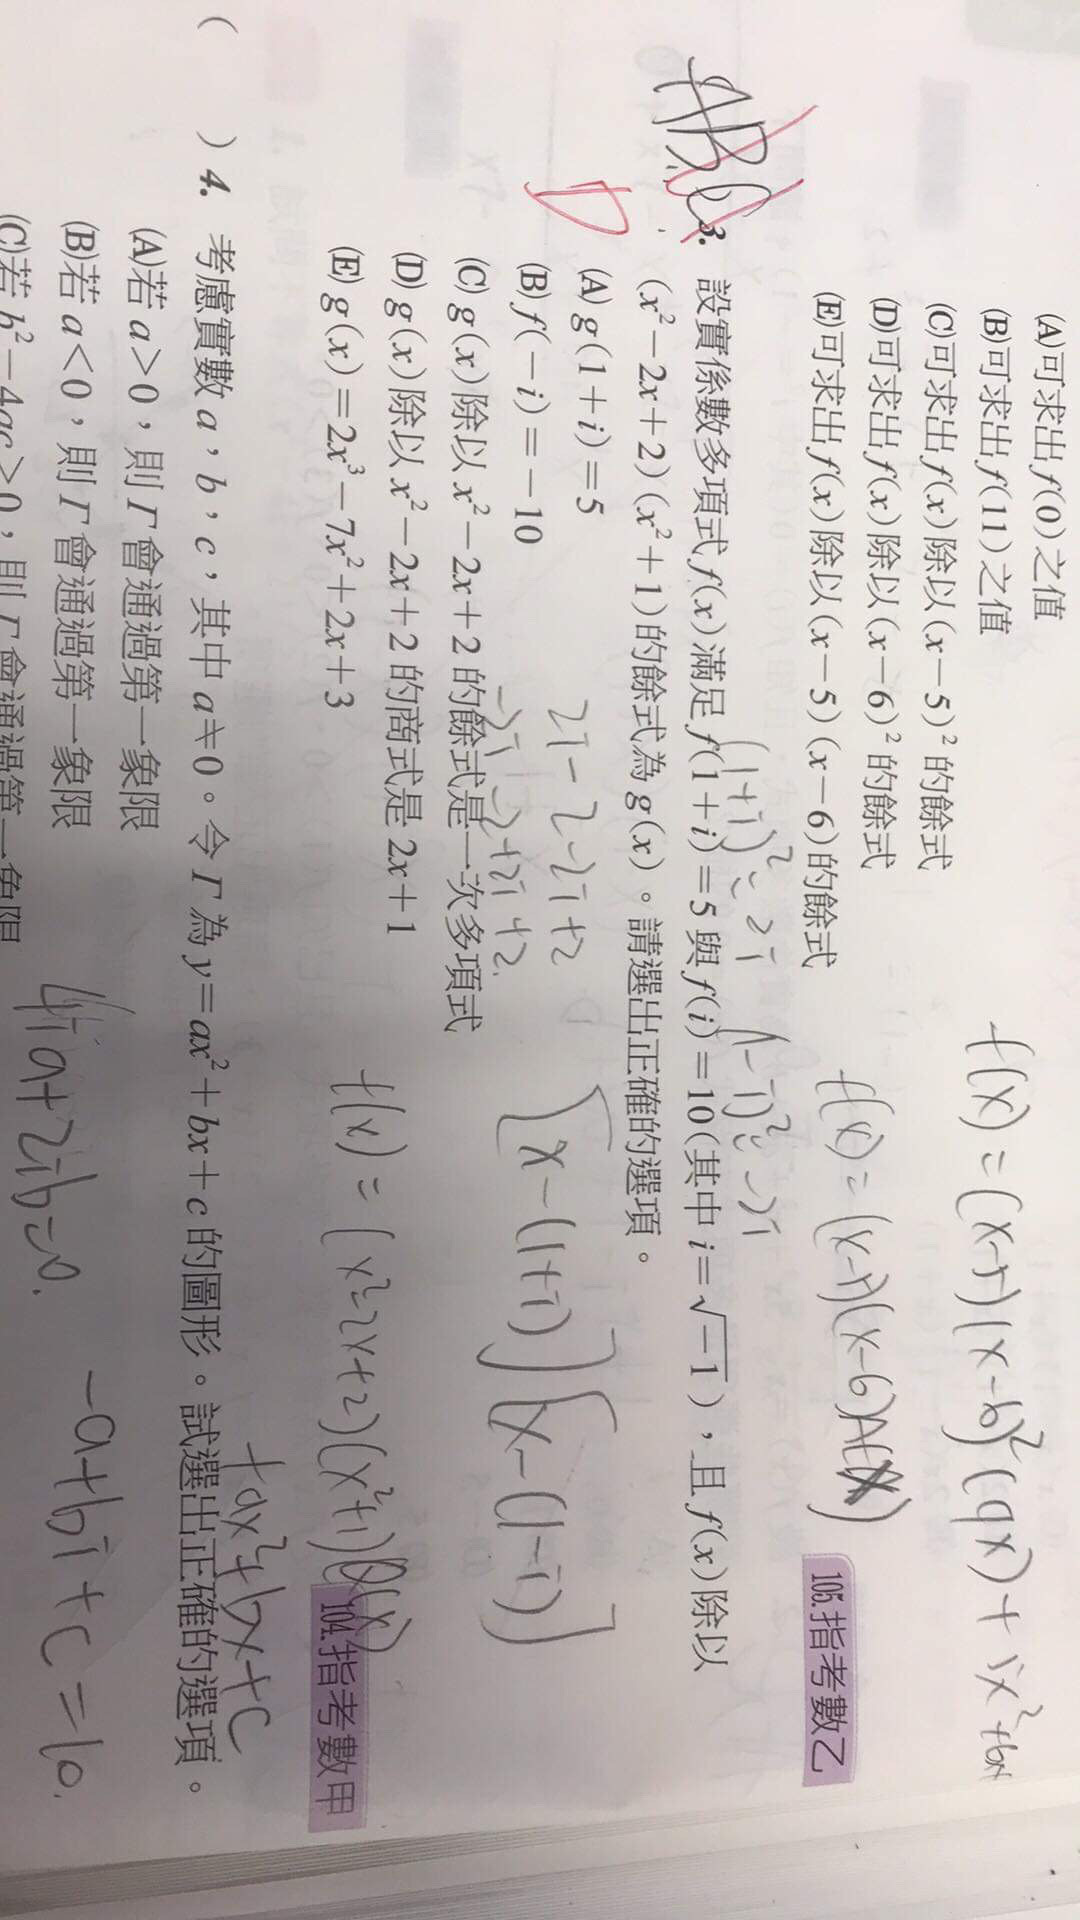 (A)可求出f(0)之值
(B)可求出f(11)之值
(C)可求出f(x)除以(x-5)²的餘式
(D)可求出f(x)除以(x-6)²的餘式
(E)可求出f(x)除以(x-5)(x-6)的餘式
f(x) = (x-5)(x-6)²(qx) +
f(x) = (x-5)(x-6)A(x)
105.指考數乙
(1+i)² = 2i
(1-i)² = -2i
3. 設實係數多項式f(x)滿足f(1+i)=5與f(i)=10(其中i=√-1),且f(x)除以
(x²-2x+2)(x²+1)的餘式為g(x)。請選出正確的選項。
(A) g(1+i)=5
(B) f(-i)=-10
(C) g(x)除以x²-2x+2的餘式是一次多項式
(D) g(x)除以x²-2x+2的商式是2x+1
(E) g(x)=2x³-7x²+2x+3
2i-2-2i+2
-2i-2+2i+2
[x-(1+i)][x-(1-i)]
f(x) = (x²-2x+2)(x²+1)Q(x)
+ax²+bx+c
104.指考數甲
( ) 4. 考慮實數a,b,c,其中a≠0。令Γ為y=ax²+bx+c的圖形。試選出正確的選項。
(A)若a>0,則Γ會通過第一象限
(B)若a<0,則Γ會通過第一象限
(C)若b²-4ac>0,則Γ會通過第一象限
-a+bi+c=10.